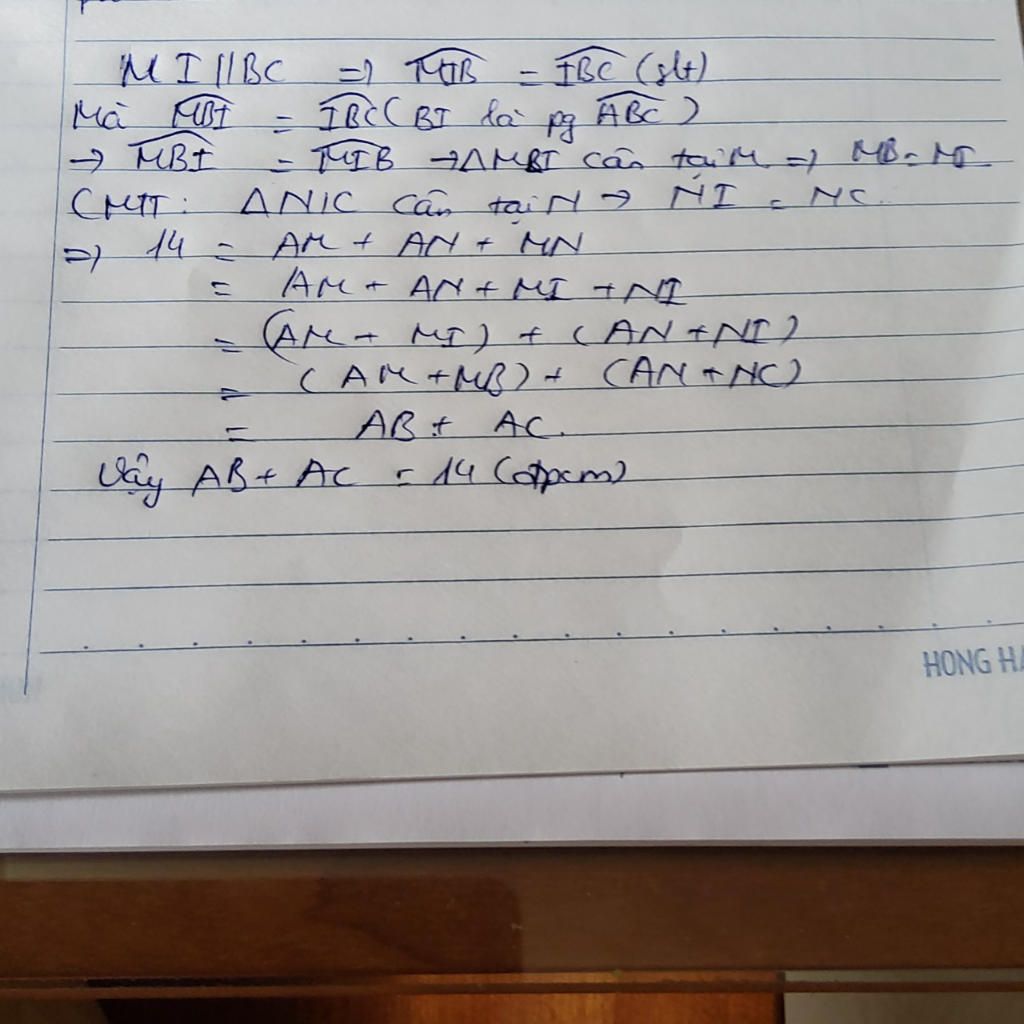 MI//BC => \widehat{MIB} = \widehat{IBC} (slt)
Mà \widehat{MBI} = \widehat{IBC} (BI là pg \widehat{ABC})
→ \widehat{MBI} = \widehat{MIB} → ΔMBI cân tại M => MB = MI
CMTT: ΔNIC cân tại N → NI = NC.
=> 14 = AM + AN + MN
= AM + AN + MI + NI
= (AM + MI) + (AN + NI)
= (AM + MB) + (AN + NC)
= AB + AC.
Vậy AB + AC = 14 (đpcm)
HONG HA